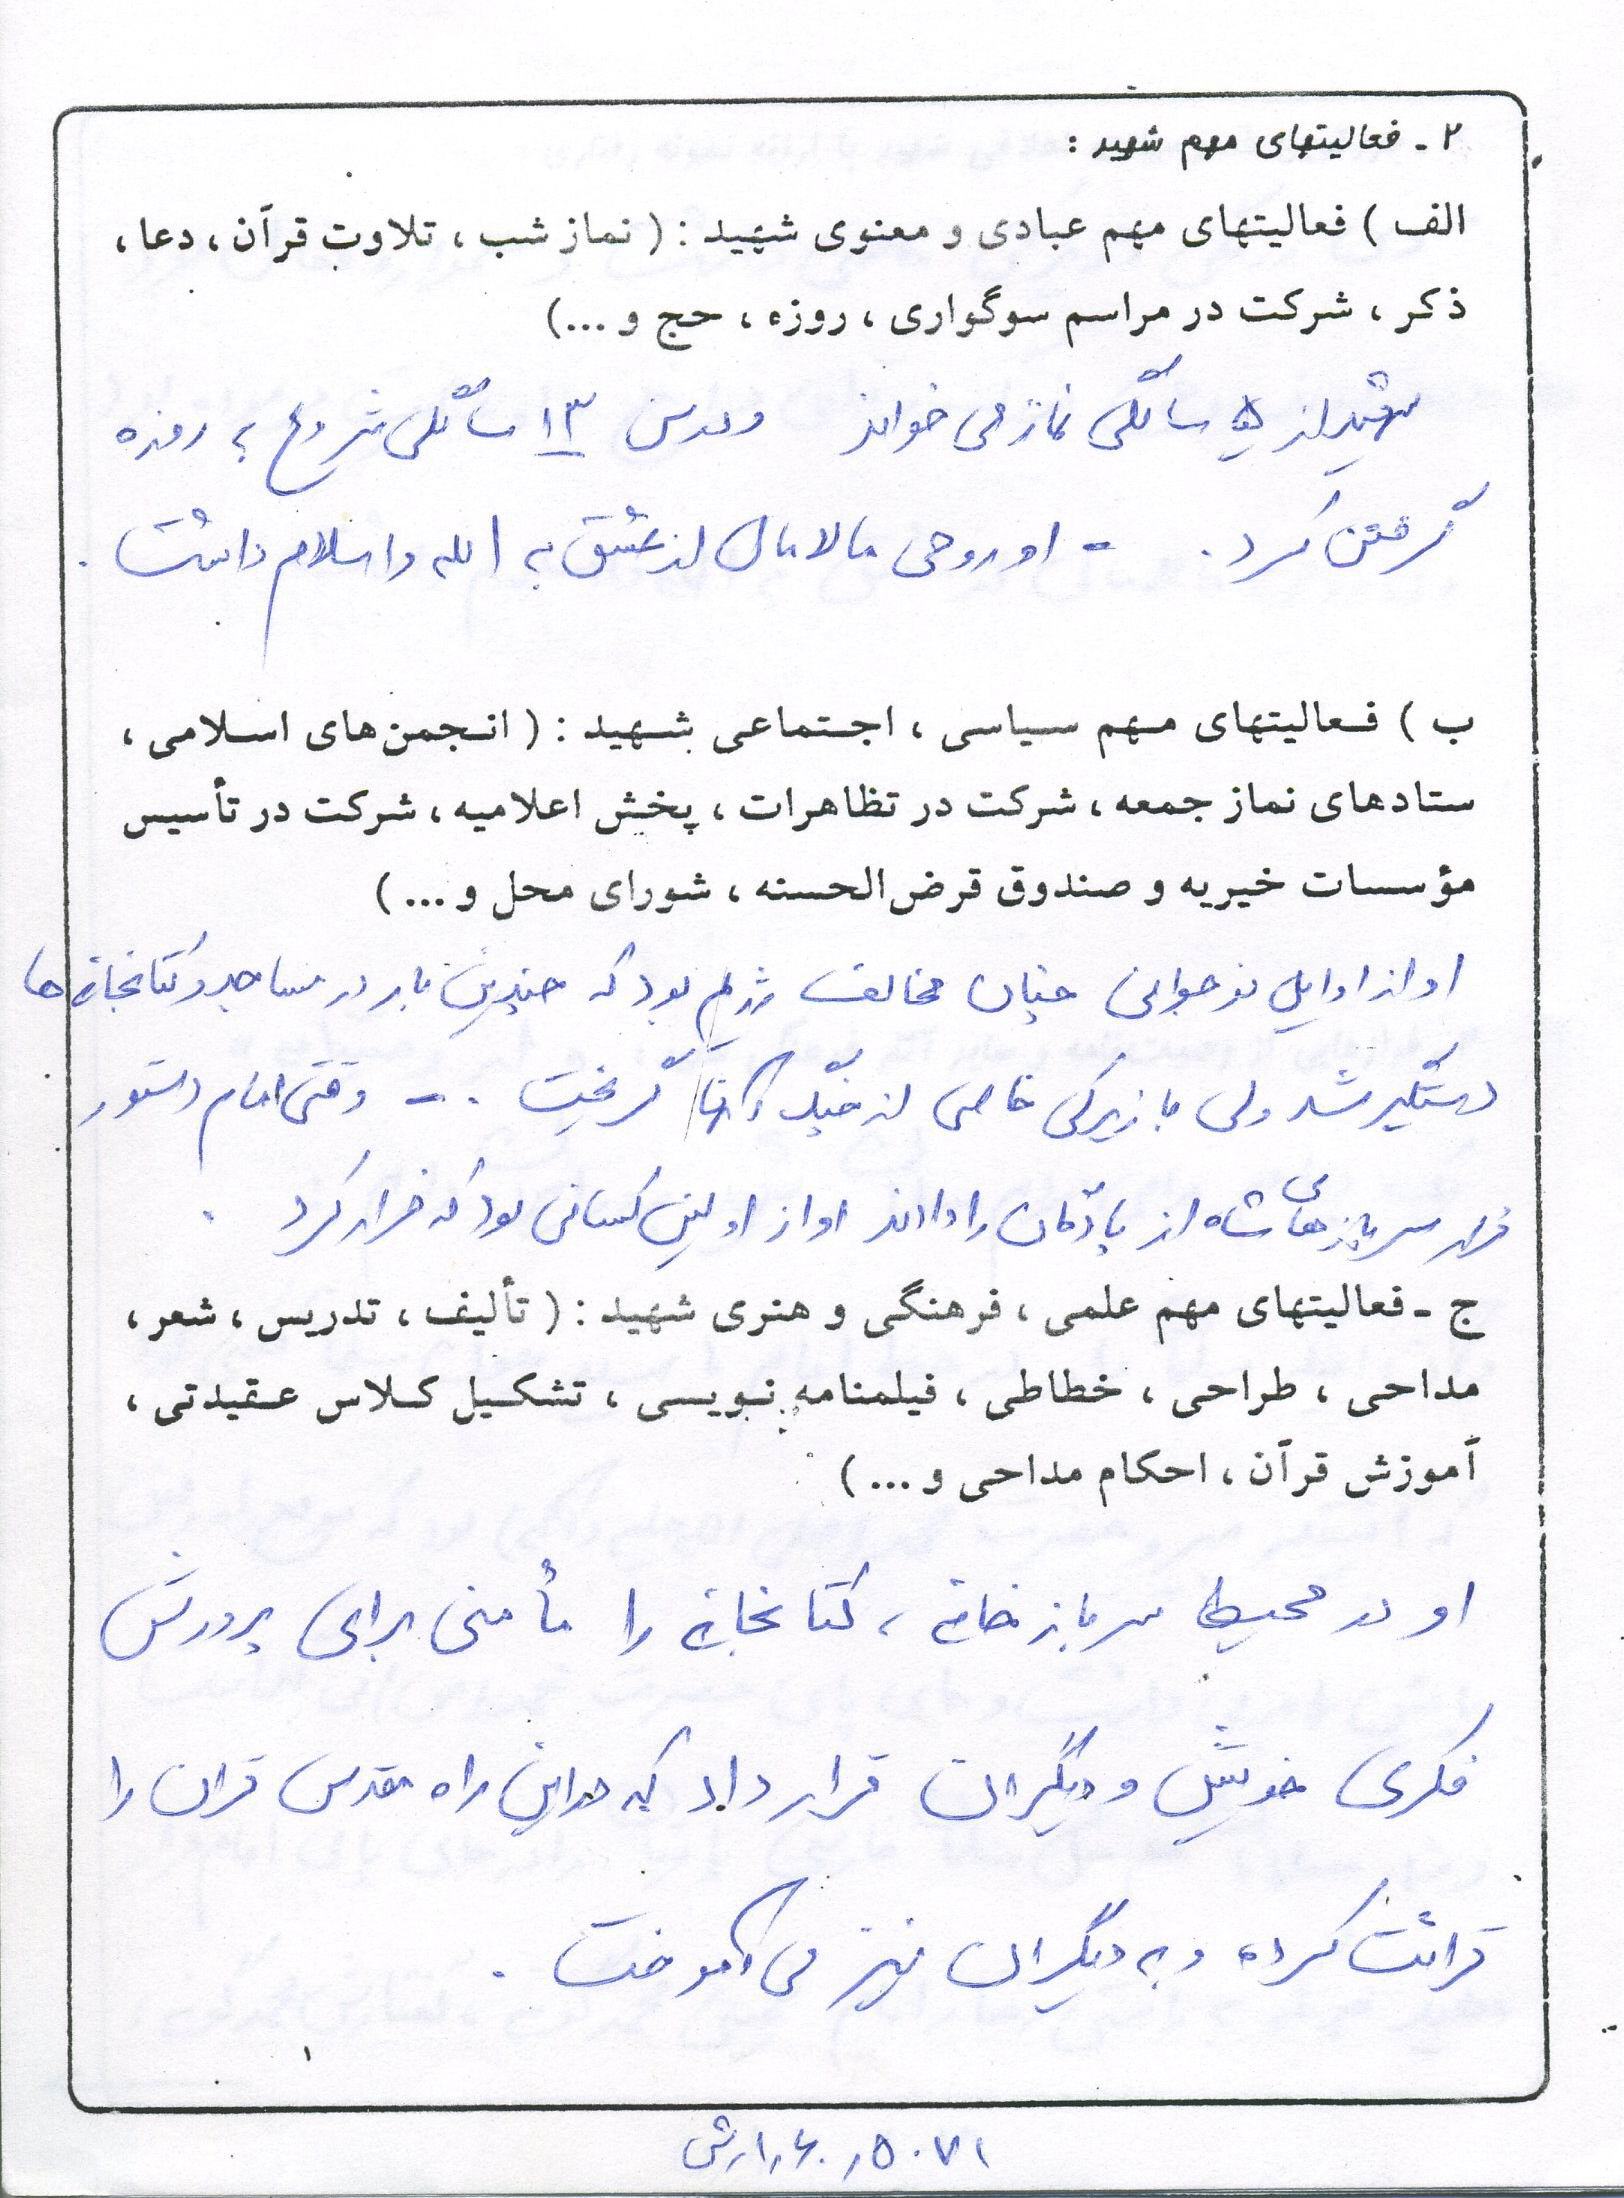 ۲ - فعالیتهای مهم شهید :
الف ) فعالیتهای مهم عبادی و معنوی شهید : ( نماز شب ، تلاوت قرآن ، دعا ،
ذکر ، شرکت در مراسم سوگواری ، روزه ، حج و ...)
شهید از ۵ سالگی نماز می خواند ودرسن ۱۳ سالگی شروع به روزه
گرفتن کرد . - او روحی مالامال از عشق به الله و اسلام داشت .
ب ) فعالیتهای مهم سیاسی ، اجتماعی شهید : ( انجمن های اسلامی ،
ستادهای نماز جمعه ، شرکت در تظاهرات ، پخش اعلامیه ، شرکت در تأسیس
مؤسسات خیریه و صندوق قرض الحسنه ، شورای محل و ... )
او از اوایل نوجوانی چنان مخالف رژیم بود که چندین بار در مساجد و کتابخانه ها
دستگیر شد ولی با زیرکی خاصی از چنگ آنها گریخت . - وقتی امام دستور
فرار سربازهای شاه از پادگان را دادند او از اولین کسانی بود که فرار کرد .
ج - فعالیتهای مهم علمی ، فرهنگی و هنری شهید : ( تألیف ، تدریس ، شعر ،
مداحی ، طراحی ، خطاطی ، فیلمنامه نویسی ، تشکیل کلاس عقیدتی ،
آموزش قرآن ، احکام مداحی و ... )
او در محیط سربازخانه ، کتابخانه را مأمنی برای پرورش
فکری خویش و دیگران قرار داد که در این راه مقدس قران را
قرائت کرده و به دیگران نیز می آموخت .
۱